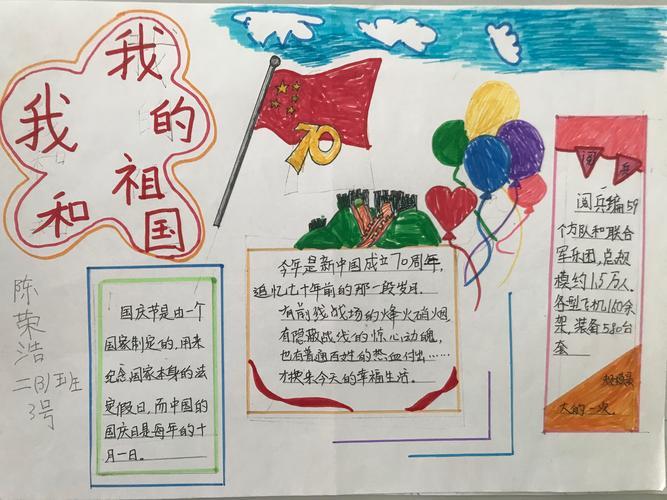 我和我的祖国
70
陈荣浩
二(3)班
3号
国庆节是由一个
国家制定的,用来
纪念国家本身的法
定假日,而中国的
国庆日是每年的十
月一日。
今年是新中国成立70周年,
追忆七十年前的那一段岁月.
有前线战场的烽火硝烟
有隐蔽战线的惊心动魄,
也有普通百姓的热血付出……
才换来今天的幸福生活。
阅兵
阅兵编59
个方队和联合
军乐团,总规
模约1.5万人,
各型飞机160余
架,装备580台
套
大的一次.